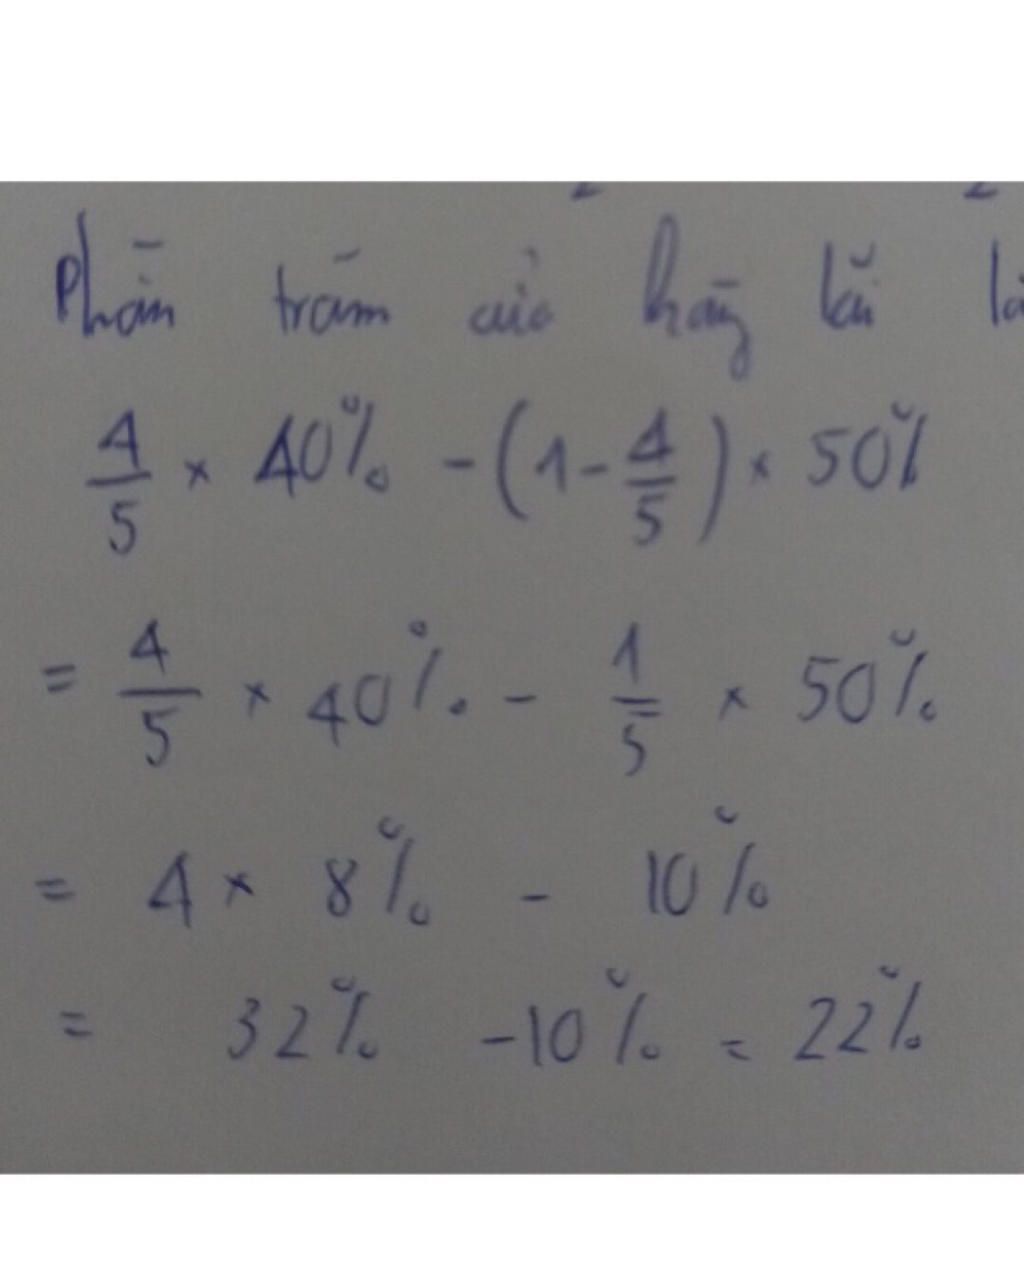 Phần trăm của hãng lãi là
4/5 × 40% - (1 - 4/5) × 50%
= 4/5 × 40% - 1/5 × 50%
= 4 × 8% - 10%
= 32% - 10% = 22%